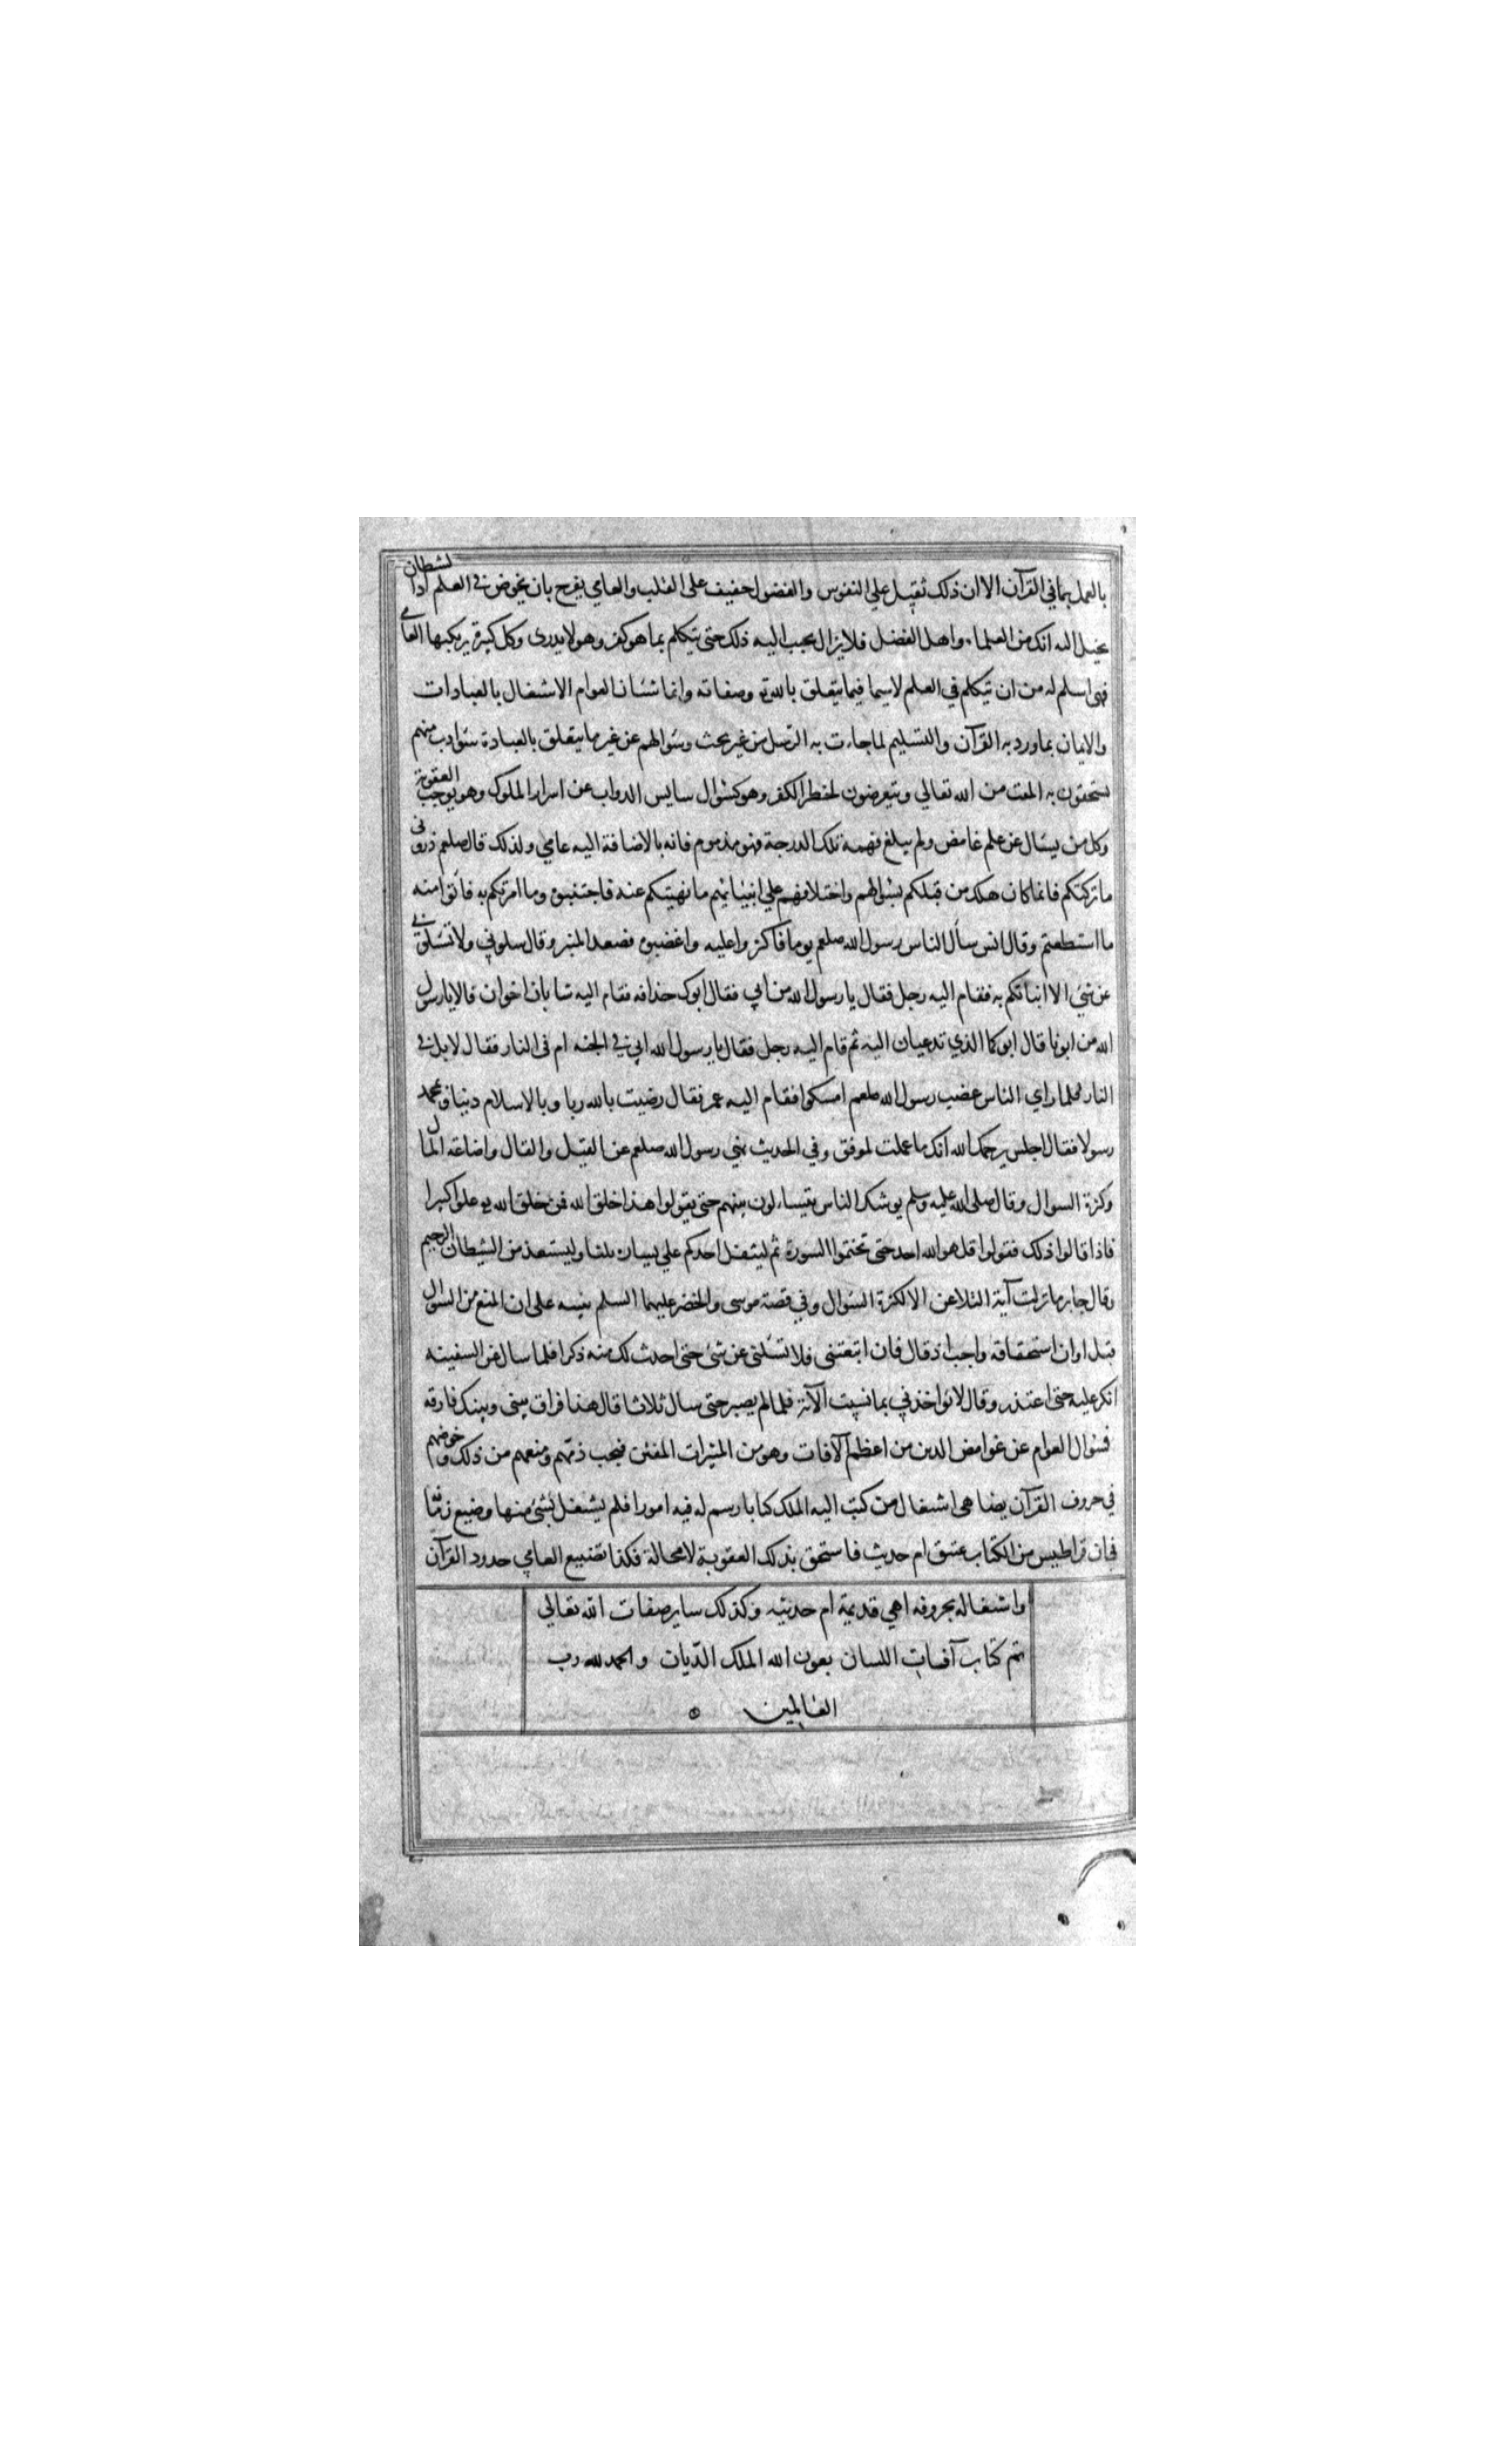 بالعمل بما في القرآن الا ان ذلك ثقيل علي النفوس والفضول خفيف على القلب والعامي يفرح بان يخوض في العلم اذا لشطان
يخيل اليه انك من العلماء واهل الفضل فلا يزال يحبب اليه ذلك حتى يتكلم بما هو كفر وهو لا يدرى وكل كبيرة يركبها العامي
فهى اسلم له من ان يتكلم في العلم لاسيما فيما يتعلق بالله وصفاته وانما شان العوام الاشتغال بالعبادات
والايمان بما ورد به القرآن والتسليم لما جاءت به الرسل من غير بحث وسوالهم عن غير ما يتعلق بالعبادة سو ادب منهم
يستحقون به المقت من الله تعالي ويتعرضون لخطر الكفر وهو كسؤال سايس الدواب عن اسرار الملوك وهو يوجب العقوبة
وكل من يسال عن علم غامض ولم يبلغ فهمه تلك الدرجة فهو مذموم فانه بالاضافة اليه عامي ولذلك قال صلعم ذرونى
ما تركتكم فانما كان هلك من قبلكم بسوالهم واختلافهم علي انبيائهم ما نهيتكم عنه فاجتنبوه وما امرتكم به فأتوا منه
ما استطعتم وقال انس سأل الناس رسول الله صلعم يوما فاكثروا عليه واغضبوه فصعد المنبر وقال سلوني ولا تسلوني
عن شئ الا انباتكم به فقام اليه رجل فقال يا رسول الله من ابي فقال ابوك حذافه فقام اليه شابان اخوان فقالا يا رسول
الله من ابونا قال ابوكما الذي تدعيان اليه ثم قام اليه رجل فقال يا رسول الله ابي في الجنه ام فى النار فقال لا بل في
النار فلما راي الناس غضب رسول الله صلعم امسكوا فقام اليه عمر فقال رضيت بالله ربا وبالاسلام دينا وبمحمد
رسولا فقال اجلس يرحمك الله انك ما عملت لموفق وفي الحديث نهي رسول الله صلعم عن القيل والقال واضاعة المال
وكثرة السوال وقال صلى الله عليه وسلم يوشك الناس يتساءلون بينهم حتى يقولوا هذا خلق الله فمن خلق الله
فاذا قالوا ذلك فقولوا قل هو الله احد حتى تختموا السورة ثم ليتفل احدكم علي يساره ثلثا وليستعذ من الشيطان الرجيم
وقال جابر ما نزلت آية التلاعن الا لكثرة السؤال وفي قصة موسى والخضر عليهما السلم تنبيه على ان المنع من السوال
قبل اوان استحقاقه واجب اذ قال فان اتبعتنى فلا تسئلنى عن شئ حتى احدث لك منه ذكرا فلما سال عن السفينه
انكر عليه حتى اعتذر وقال لا تواخذني بما نسيت الآية فلما لم يصبر حتى سال ثلاثا قال هذا فراق بينى وبينك فارقه
فسؤال العوام عن غوامض الدين من اعظم الآفات وهو من المثيرات للفتن فيجب ذمهم ومنعهم من ذلك وخوضهم
في حروف القرآن يضاهى اشتغال من كتب اليه الملك كتابا رسم له فيه امورا فلم يشتغل بشئ منها وضيع زمانه
في ان قراطيس من الكتاب عتيق ام حديث فاستحق بذلك العقوبة لا محالة فكذا تضييع العامي حدود القرآن
واشتغاله بحروفه اهي قديمة ام حديثه وكذلك ساير صفات الله تعالي
تم كتاب آفات اللسان بعون الله الملك الديان والحمد لله رب
العالمين